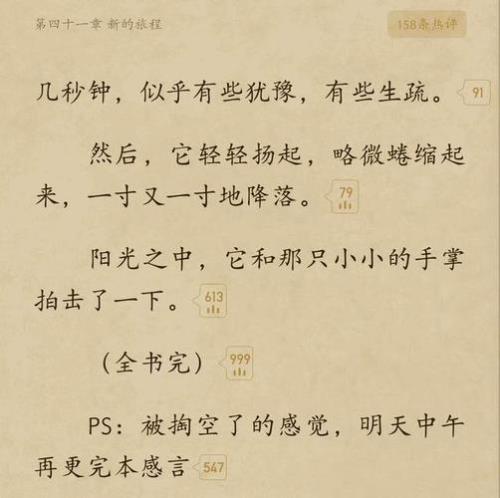 第四十一章 新的旅程 158条热评
几秒钟，似乎有些犹豫，有些生疏。 91
然后，它轻轻扬起，略微蜷缩起
来，一寸又一寸地降落。 79
阳光之中，它和那只小小的手掌
拍击了一下。 613
（全书完） 999
PS：被掏空了的感觉，明天中午
再更完本感言 547